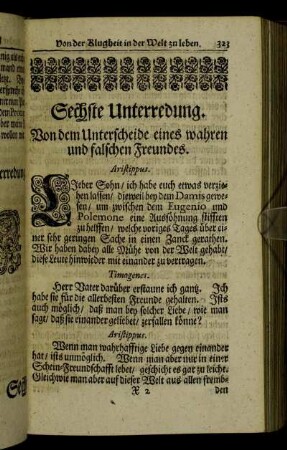 Von der Klugheit in der Welt zu leben. 323
Sechste Unterredung.
Von dem Unterscheide eines wahren
und falschen Freundes.
Aristippus.
Lieber Sohn/ ich habe euch etwas verzie-
hen lassen/ dieweil bey dem Damis gewe-
sen/ um zwischen dem Eugenio und
Polemone eine Aussöhnung stifften
zu helffen/ welche voriges Tages über ei-
ner sehr geringen Sache in einen Zanck gerathen.
Wir haben dabey alle Mühe von der Welt gehabt/
diese Leute hinwieder mit einander zu vertragen.
Timogenes.
Herr Vater darüber erstaune ich gantz. Ich
habe sie für die allerbesten Freunde gehalten. Ists
auch möglich/ daß man bey solcher Liebe/ wie man
sagt/ daß sie einander geliebet/ zerfallen könne?
Aristippus.
Wenn man wahrhafftige Liebe gegen einander
hat/ ists unmöglich. Wenn man aber mit in einer
Schein-Freundschafft lebet/ geschicht es gar zu leicht.
Gleich wie man aber auf dieser Welt aus allen fremb-
X 2 den